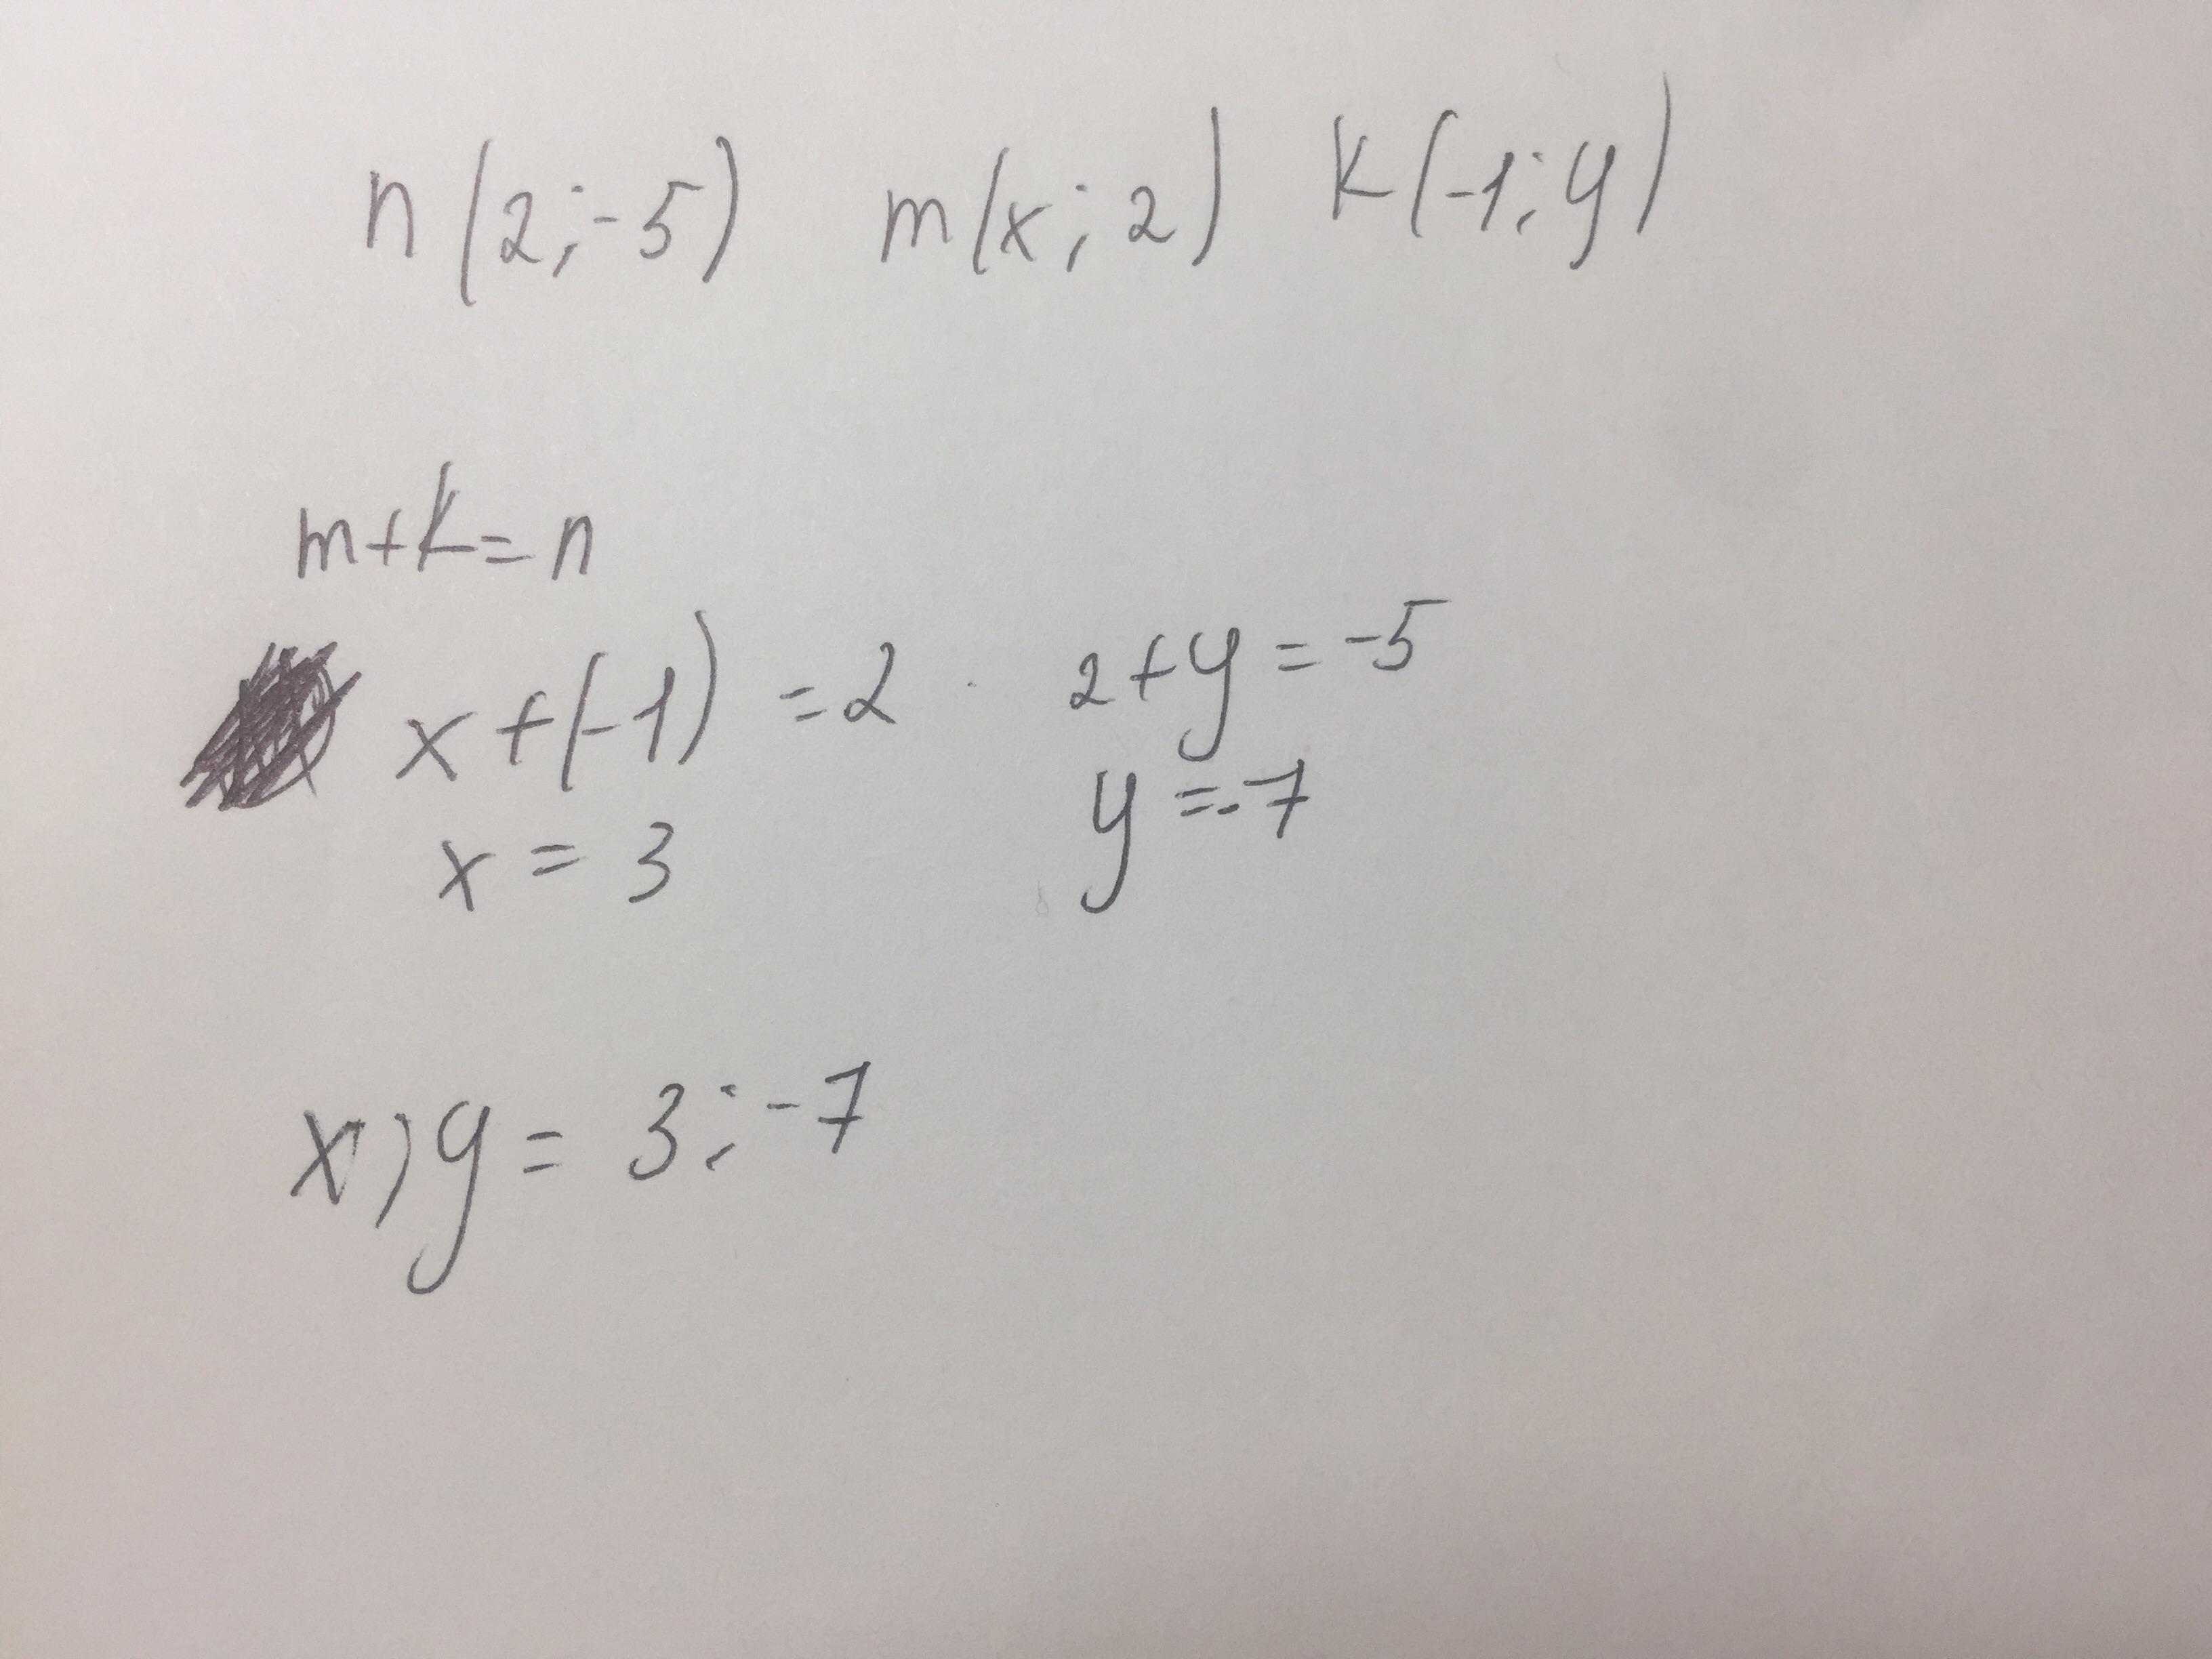 n (2;-5) m(x;2) k(-1;y)
m+k=n
x+(-1) =2 2+y=-5
x = 3 y=-7
x;y= 3;-7